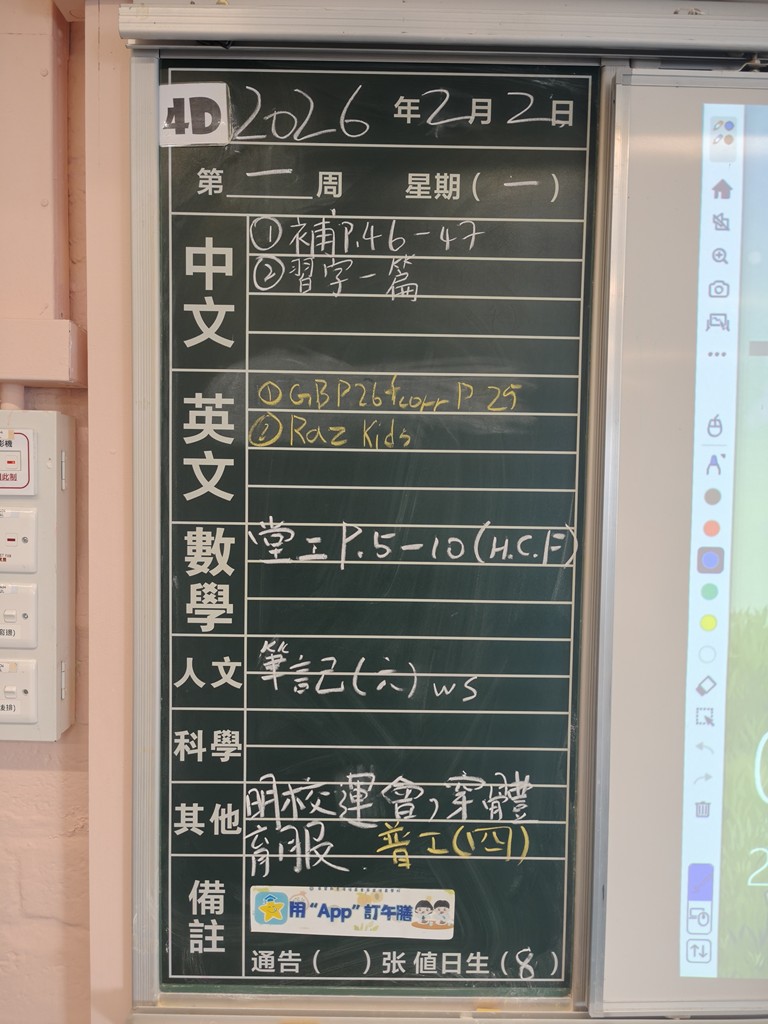 4D 2026年2月2日
第一周 星期(一)
中文
①補P.46-47
②習字一篇
英文
①GBP26+corr P 25
②Raz Kids
數學
堂工P.5-10(H.C.F)
人文
筆記(六)ws
科學
其他
明校運會,穿體
育服. 普工(四)
備註
用“App”訂午膳
通告( )张 值日生(8)